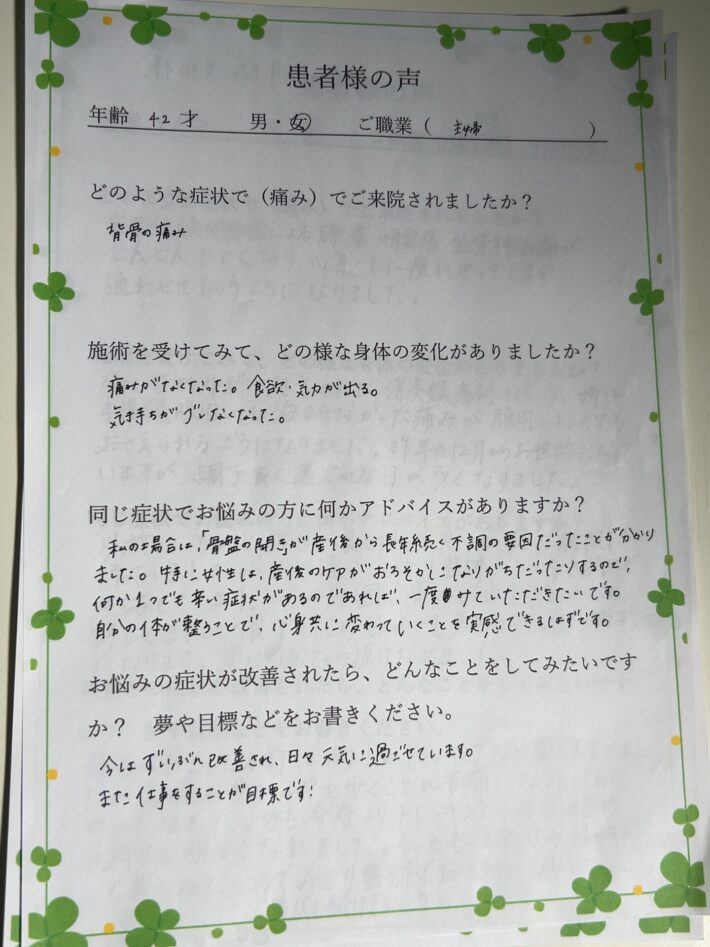 患者様の声
年齢 42 才 男・女 ご職業（ 主婦 ）
どのような症状で（痛み）でご来院されましたか？
背骨の痛み
施術を受けてみて、どの様な身体の変化がありましたか？
痛みがなくなった。食欲・気力が出る。
気持ちがブレなくなった。
同じ症状でお悩みの方に何かアドバイスがありますか？
私の場合は、「骨盤の開き」が産後から長年続く不調の要因だったことが分かり
ました。特に女性は、産後のケアがおろそかになりがちだったりするので、
何か1つでも辛い症状があるのであれば、一度みていただきたいです。
自分の体が整うことで、心身共に変わっていくことを実感できるはずです。
お悩みの症状が改善されたら、どんなことをしてみたいです
か？ 夢や目標などをお書きください。
今はずいぶん改善され、日々元気に過ごせています。
また仕事をすることが目標です!